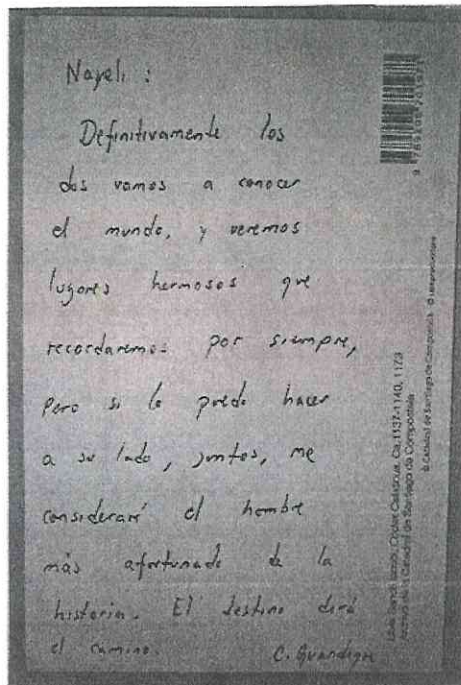 Nayeli :
Definitivamente los
dos vamos a conocer
el mundo, y veremos
lugares hermosos que
recordaremos por siempre,
pero si lo puedo hacer
a su lado, juntos, me
consideraré el hombre
más afortunado de la
historia. El destino dirá
el camino.
C.
Códex Calixtinus, Ca. 1137-1140, 1173
Archivo de la Catedral de Santiago de Compostela
© Catedral de Santiago de Compostela